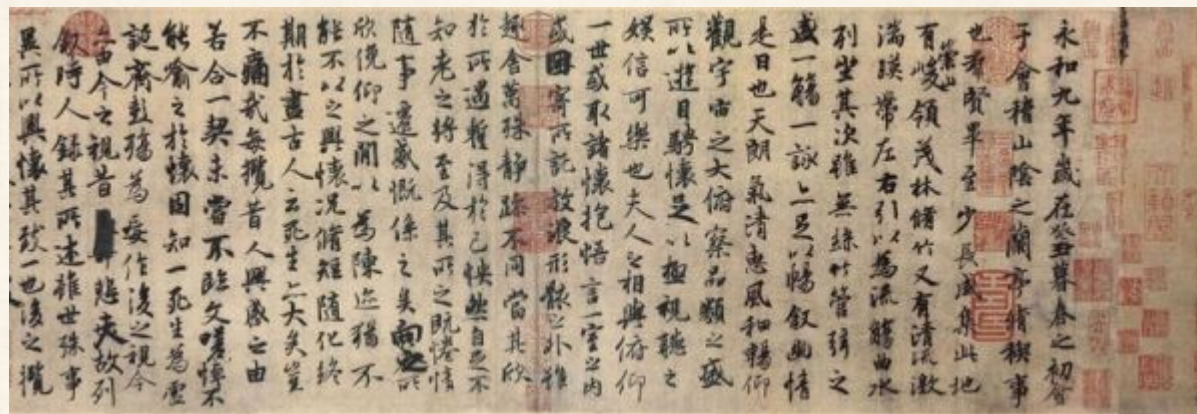 永和九年歲在癸丑暮春之初會
于會稽山陰之蘭亭脩稧事
也羣賢畢至少長咸集此地
有崇山峻領茂林脩竹又有清流激
湍暎帶左右引以為流觴曲水
列坐其次雖無絲竹管弦之
盛一觴一詠亦足以暢敘幽情
是日也天朗氣清惠風和暢仰
觀宇宙之大俯察品類之盛
所以遊目騁懷足以極視聽之
娛信可樂也夫人之相與俯仰
一世或取諸懷抱悟言一室之內
或因寄所託放浪形骸之外雖
趣舍萬殊靜躁不同當其欣
於所遇暫得於己快然自足不
知老之將至及其所之既惓情
隨事遷感慨係之矣向之所
欣俛仰之閒以為陳迹猶不
能不以之興懷況脩短隨化終
期於盡古人云死生亦大矣豈
不痛哉每攬昔人興感之由
若合一契未嘗不臨文嗟悼不
能喻之於懷固知一死生為虛
誕齊彭殤為妄作後之視今
亦由今之視昔悲夫故列
敘時人錄其所述雖世殊事
異所以興懷其致一也後之攬